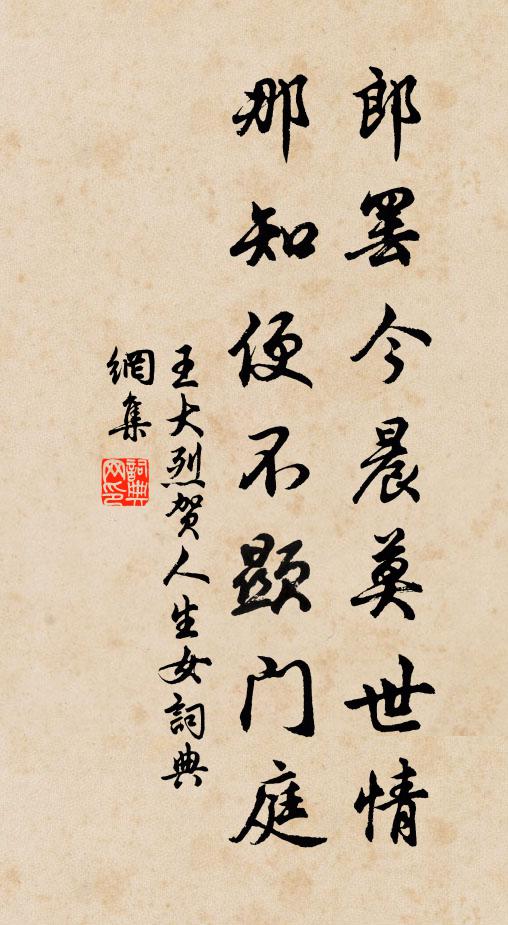 郎罢今晨莫世情
那知便不顯门庭
王大烈贺人生女詞典
網集
詞典网印